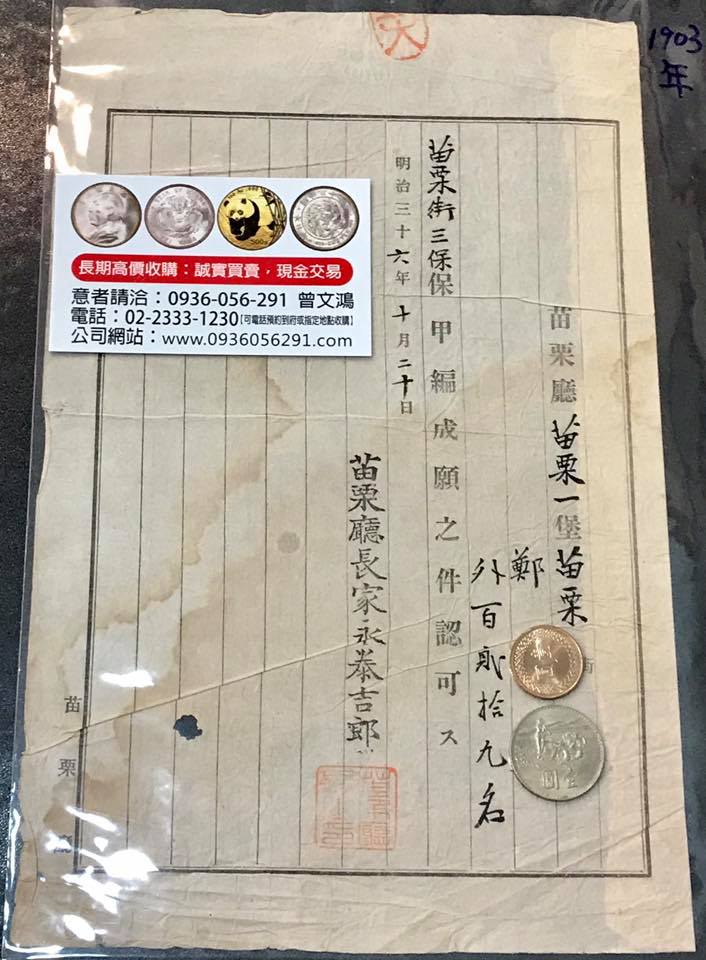 大
1903
年
苗栗廳苗栗一堡苗栗
鄭
外百貳拾九名
苗栗街三保保甲編成願之件認可ス
明治三十六年十月二十日
苗栗廳長家永泰吉郎
苗栗廳
長期高價收購：誠實買賣，現金交易
意者請洽：0936-056-291 曾文鴻
電話：02-2333-1230【可電話預約到府或指定地點收購】
公司網站：www.0936056291.com
500元
壹圓